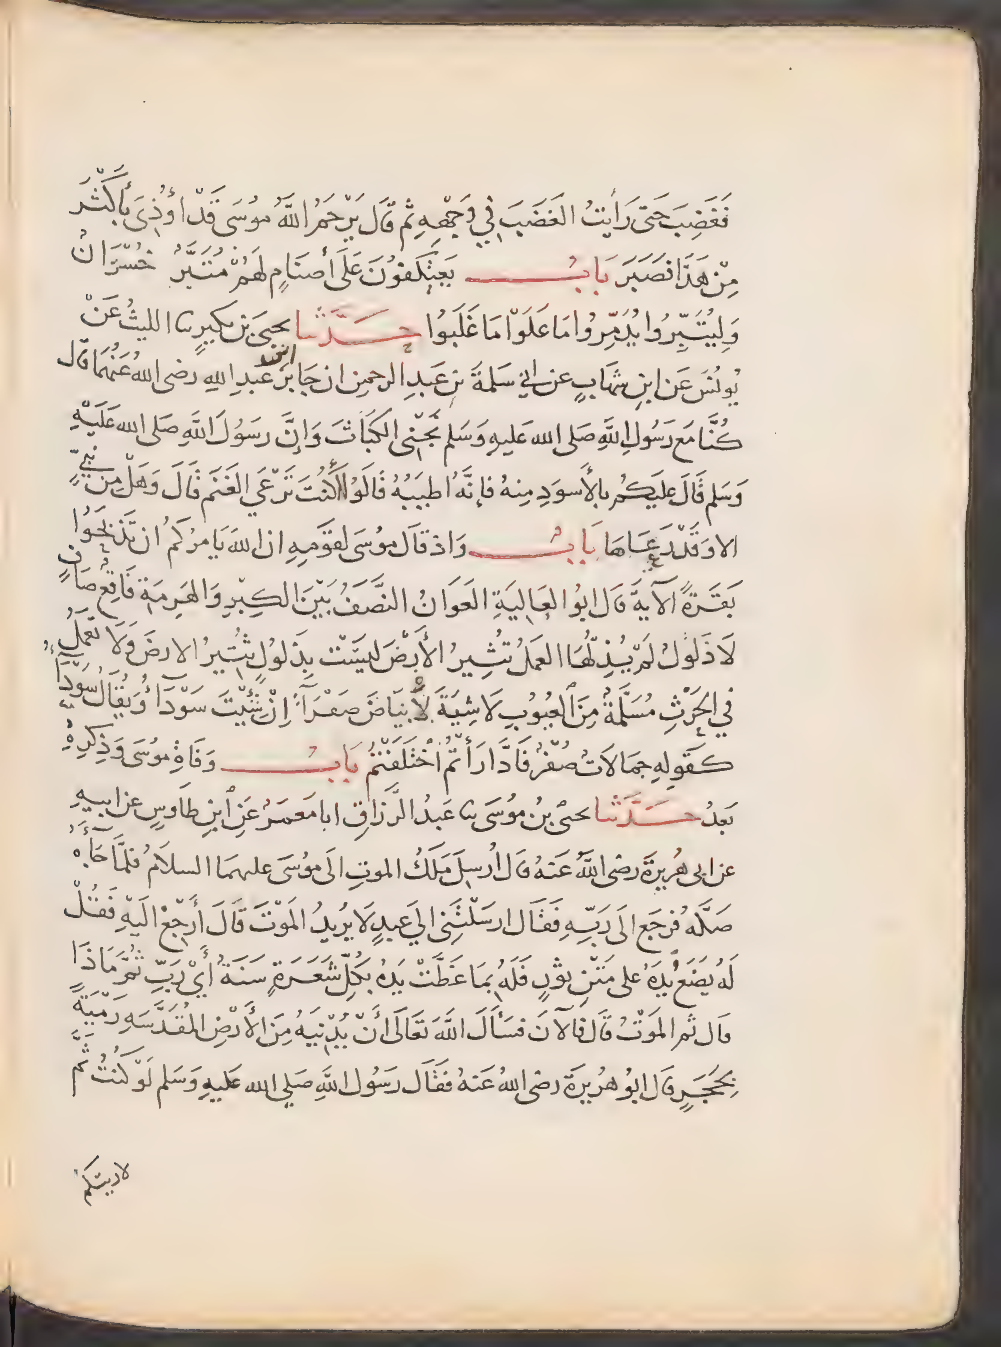 فَغَضِبَ حَتى رَأيتُ الغَضَبَ فِي وَجْهِهِ ثم قال يَرْحَمُ اللهُ موُسَى قَدْ أوُذِىَ بأكْثَرَ
مِنْ هَذَا فصَبَرَ بَابُ يَعْتِكفوُنَ عَلى أصنَامٍ لهَمْ مُتَبَّرٌ خُسْرَانٌ
وَلِيُتَبِّرُوا يُدَمِّرُوا مَا عَلَوْا مَا غَلَبوُا حَدَّثَنا يحيَى بن بكيرٍ ثنا الليثُ عَنْ
يوُنسَ عَن ابنِ شِهَابٍ عن ابي سَلمةَ بنِ عَبدِ الرحمنِ ان جَابرَ ابن عَبدِ اللهِ رضى الله عَنهُمَا قال
كُنَّا مَع رَسوُلِ اللهِ صَلى الله عَليهِ وَسَلم نَجْنِى الكَبَاثَ وَإنَّ رَسوُلَ اللهِ صَلى الله عَلَيْهِ
وَسَلم قَالَ عَليكمُ بالأسوَدِ مِنهُ فإنَّهُ اطيَبُهُ قَالوُا أكنْتَ تَرْعَى الغَنَم قَالَ وَهَلْ مِنْ نَبيٍّ
الا وَقَدْ رَعَاهَا بَابُ وَاذ قَال موُسَى لقَوَمِهِ ان اللهَ يَامرُكمُ ان تَذبحَوُا
بَقَرةً الآيةَ قالَ ابوُ العَاليَةِ العَوَانُ النَّصَفُ بَيْنَ البِكْرِ وَالهَرِمَةِ فَاقِعٌ صَافٍ
لاَ ذَلوُلٌ لمَ يُذِلّهَا العَمَلُ تثُيرُ الأرْضَ ليسَتْ بِذَلوُلٍ تثُيرُ الارضَ وَلاَ تَعْمَلُ
في الحَرْثِ مُسَلَّمةٌ مِنَ العُيوُبِ لاَ شِيَةَ لاَ بَيَاضَ صَفْرَآءُ إنْ شِئْتَ سَوْدَآءُ وَيُقَالُ سَوْدَآءُ
كقَولهِ جِمَالاَتٌ صُفْرٌ فَادَّارَأتُمْ اخْتَلَفْتُمْ بَابُ وَفَاةِ موُسَى وَذِكرِهُ
بَعدُ حَدَّثَنا يحيَى بنُ موُسَى ثنا عَبدُ الرَّزاقِ انا مَعمَرٌ عَنِ ابنِ طاوسٍ عن ابيهِ
عن ابى هُريرةَ رضى اللهُ عَنهُ قالَ اُرسِلَ مَلَكُ الموتِ الَى موُسَى عليهمَا السلاَمُ فلمَّا جَآءَهُ
صَكَّهُ فرجَع الَى رَبّهِ فَقَال ارسَلْتَنِى الي عَبدٍ لاَ يرُيدُ المَوْتَ قَالَ أرْجعْ اليَهِ فَقُلْ
لَهُ يَضَعُ يَدَهُ على مَتْنِ ثوَرٍ فَلَهُ بمَا غَطَّتْ يَدهُ بكلِّ شَعَرَةٍ سَنَةٌ أيْ رَبِّ ثمُ مَاذَا
قال ثم المَوْتُ قَالَ فالآنَ فسَألَ اللهَ تَعَالَى أنْ يُدْنيَهُ مِنَ الأرْضِ المُقَدَّسَةِ رَمْيَةً
بحَجَرٍ قالَ ابوُ هُريرةَ رضى اللهُ عَنهُ فَقَال رَسوُل اللهِ صَلي الله عَليهِ وَسَلم لَوْ كنْتُ ثَمَّ
لاريتكم